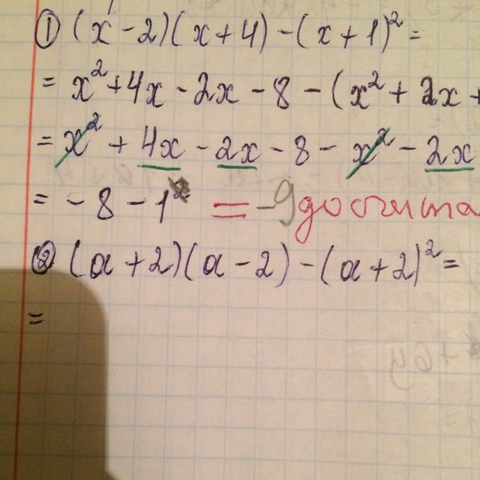 ① (x - 2)(x + 4) - (x + 1)² =
= x² + 4x - 2x - 8 - (x² + 2x +
= x² + 4x - 2x - 8 - x² - 2x
= - 8 - 1² = -9 досчита
② (a + 2)(a - 2) - (a + 2)² =
=